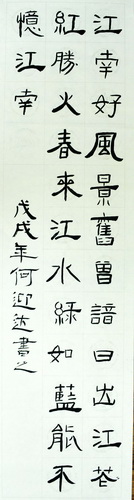 江南好風景舊曾諳日出江花
紅勝火春來江水綠如藍能不
憶江南
戊戌年何迎达書之